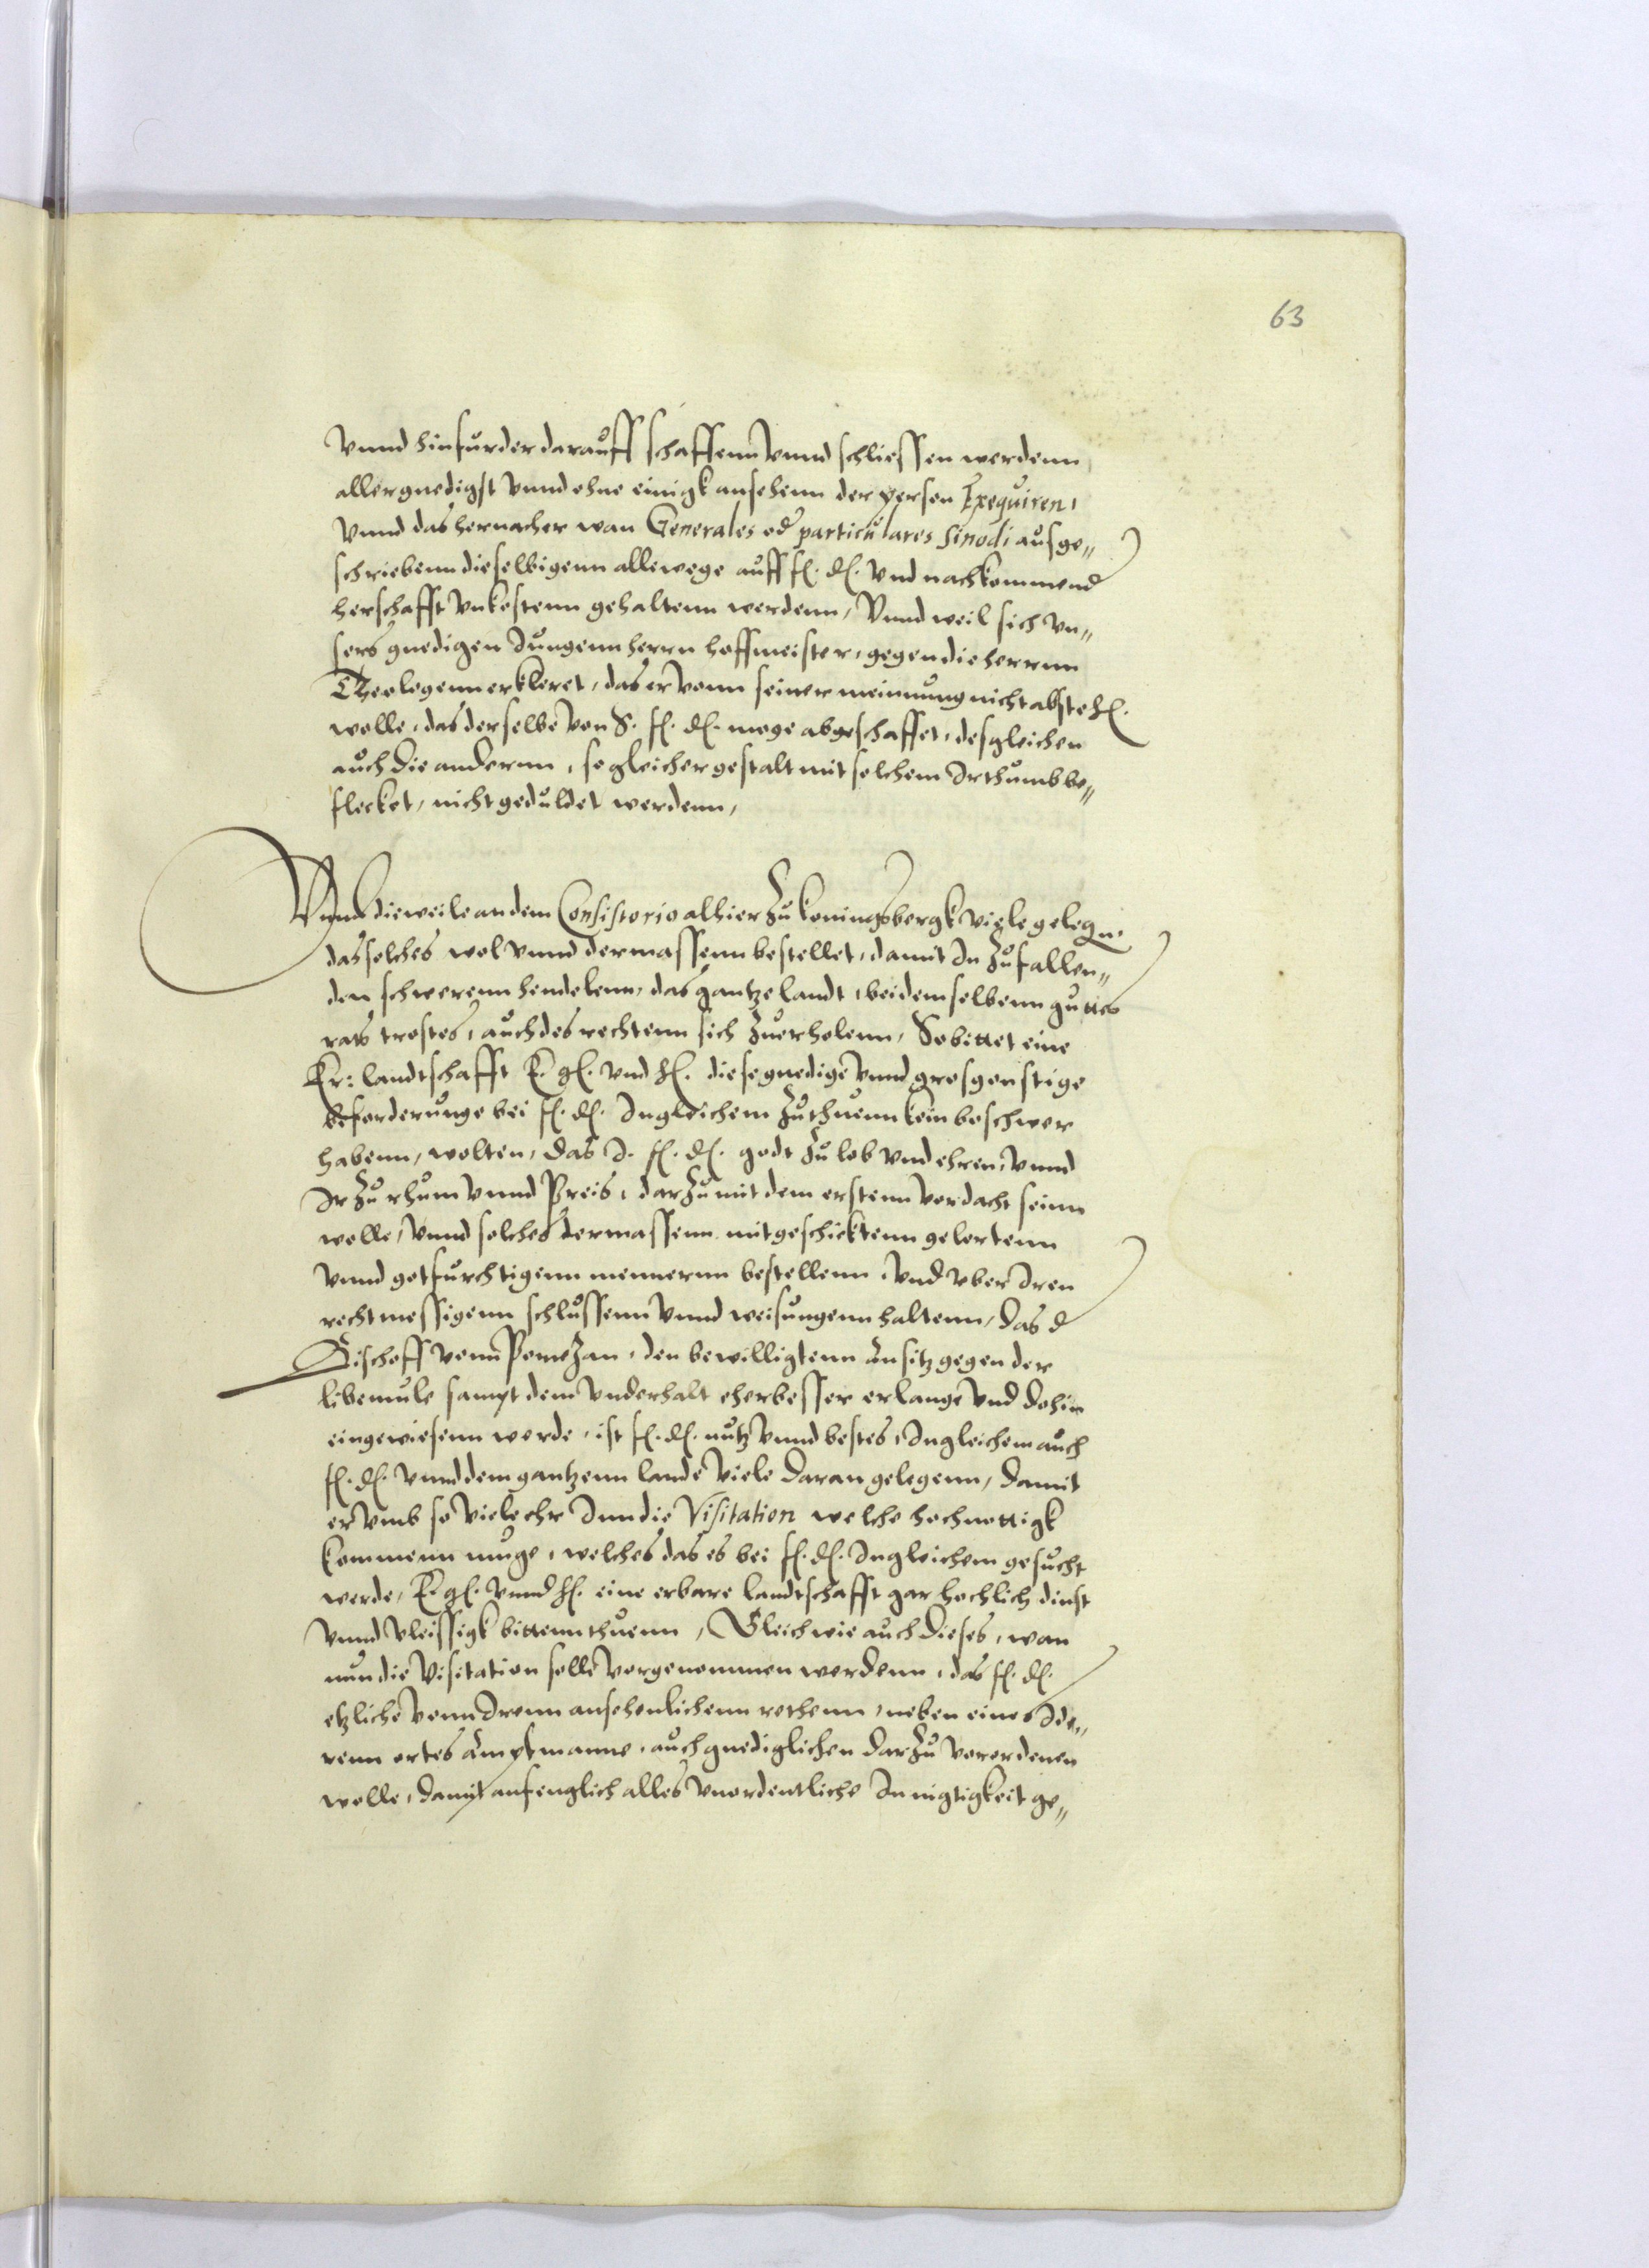 63
Vnnd hinfurder darauff schaffenn vnnd schliessen werdenn,
allergnedigst vnnd ohne einigk ansehenn der person Exequiren,
vnnd das hernacher wan Generales od particulares Sinodi ausge„
schriebenn dieselbigenn allewege auff f. d. vnd nachkommend
herschafft vnkostenn gehaltenn werdenn, Vnnd weil sich vn„
sers gnedigen Jungenn herrn hoffmeister, gegen die herrnn
Theologenn erkleret, das er vonn seiner meinnung nicht abste
wolle, das derselbe von S. f. d. moge abgeschaffet, desgleichen
auch die andernn, so gleicher gestalt mit solchem Irthumb be„
flecket, nicht geduldet werdenn,
Vnnd dieweile an dem Consistorio alhier zu koningsbergk viele gelegn.
das solches wol vnnd dermassenn bestellet, damit In zufallen„
den schwerenn hendelenn, das gantze landt, bei demselbenn guttes
rats trostes, auch des rechtenn sich zuerholenn, So bittet eine
Er: landtschafft E. g. vnd h. diese gnedige vnnd grosgonstige
beforderunge bei f. d. Ingleichem zuthuenn kein beschwer
habenn, wolten, das J. f. d. godt zu lob vnd ehren, vnnd
Ir zu rhum vnnd Preis, darzu mit dem erstenn vordacht seinn
wolle, vnnd solches dermassenn mit geschicktenn gelertenn
vnnd gotfurchtigenn mennernn bestellenn, vnd vber Iren
rechtmessigenn schlussenn vnnd weisungenn haltenn, das d
Bischoff vonn Pomezan, den bewilligtenn Ansitz gegen der
libemule sampt dem vnderhalt eher besser erlange vnd dohin
eingewiesenn werde, ist f. d. nutz vnnd bestes, Ingleichem auch
f. d. vnnd dem gantzenn lande viele daran gelegenn, damit
er vmb so viele ehr Inn die Visitation welche hochnottigk
kommenn muge, welches das es bei f. d. Ingleichem gesucht
werde, E. g. vnnd h. eine erbare landtschafft gar hochlich dinst
vnnd vleissigk bittenn thuenn, Gleich wie auch dieses, wan
nun die Visitation solle vorgenommen werdenn, das f. d.
etzliche vonn Irenn ansehenlichenn rethenn, neben eines Ide„
renn ortes Amptmanne, auch gnediglichen darzu verordenen
wolle, damit anfenglich alles vnordentliche In nigtigkeit ge„